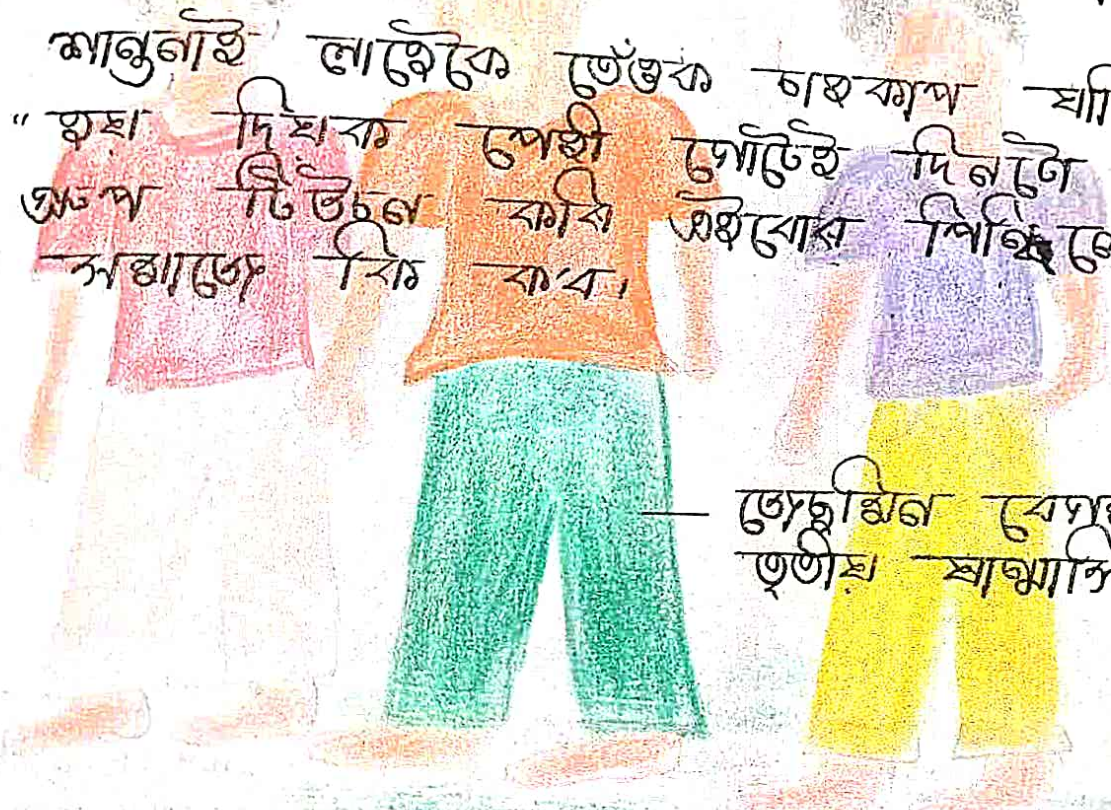 শান্তনাই লাহেকৈ তেঁওক চাহকাপ যাঁ
" হয় দিয়ক পেহী গোটেই দিনটো
অলপ টিউচন কৰি এইবোৰ পিন্ধি
সমাজে কি ক'ব।
— জেছমিন বেগ
তৃতীয় ষান্মাসি